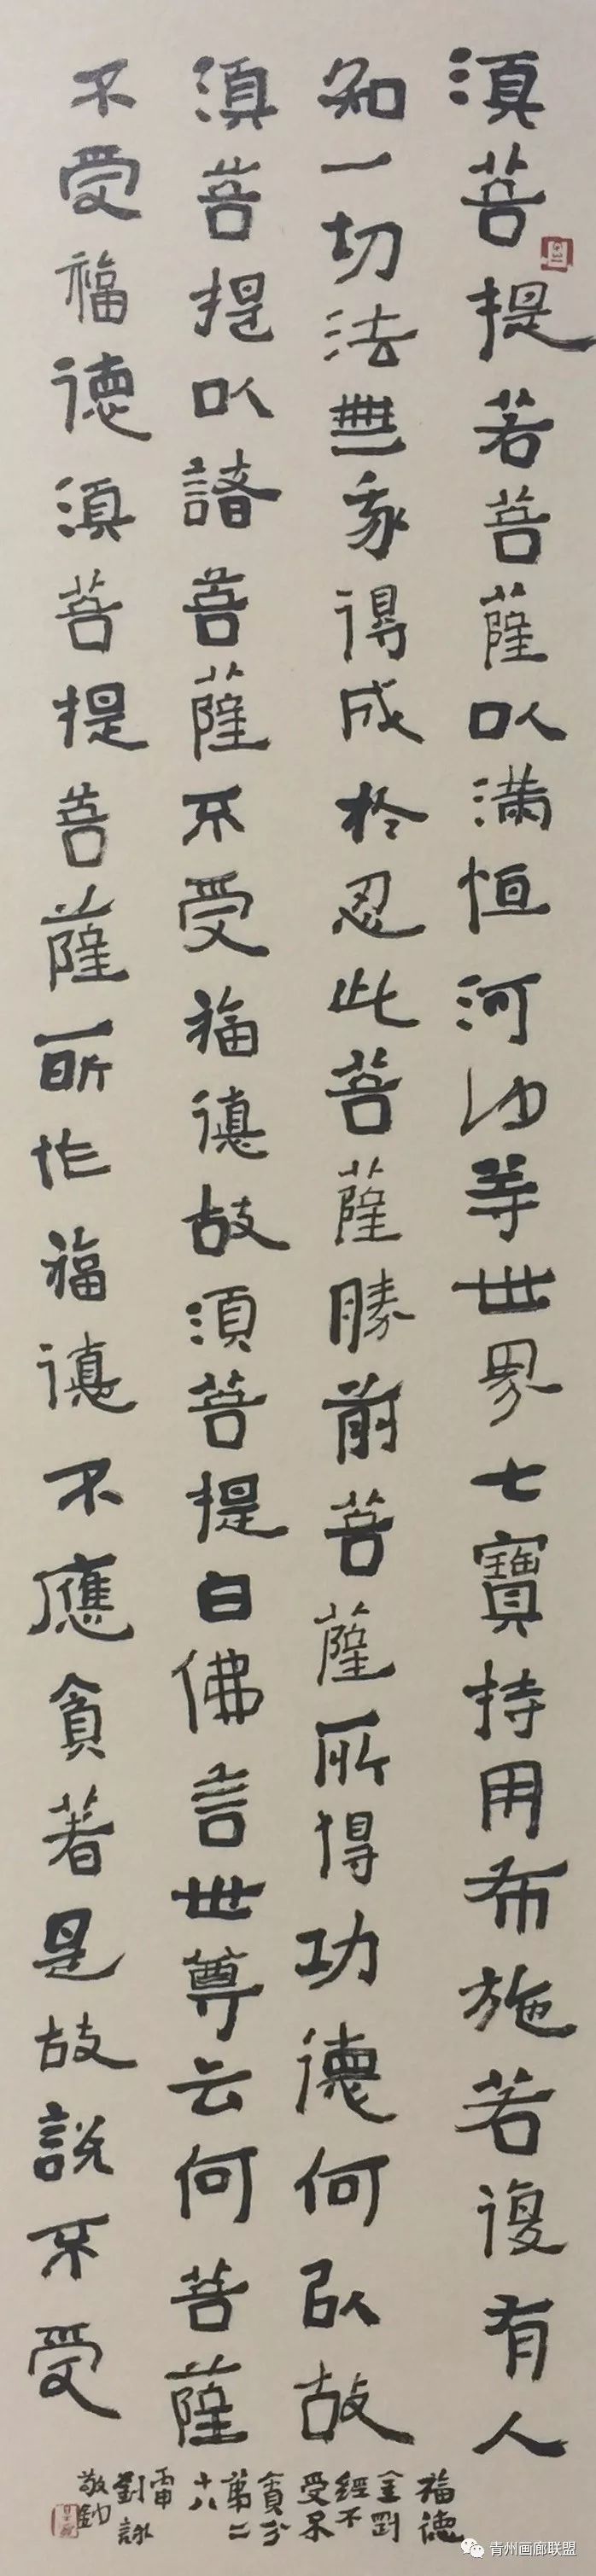 須菩提若菩薩以滿恒河沙等世界七寶持用布施若復有人
知一切法無我得成於忍此菩薩勝前菩薩所得功德何以故
須菩提以諸菩薩不受福德故須菩提白佛言世尊云何菩薩
不受福德須菩提菩薩所作福德不應貪著是故說不受
福德
金剛
經不
受不
貪分
第二
十八
劉詠
敬録
青州画廊联盟